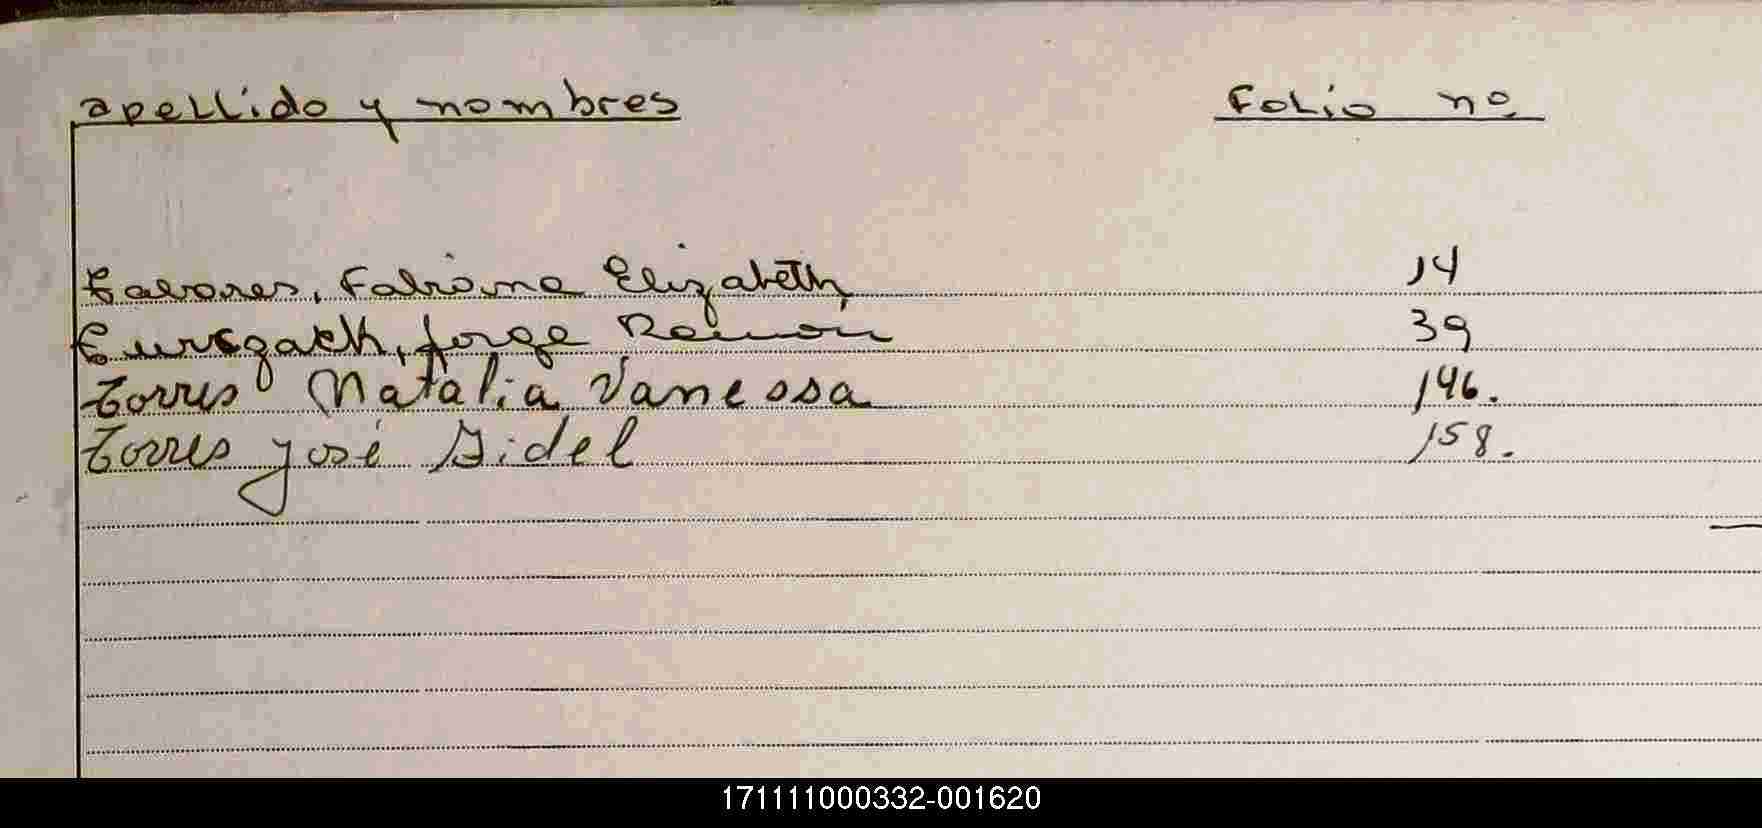 apellido y nombres Folio nº
Tavares, Fabiana Elizabeth 14
Jorge Ramon 39
Torres Natalia Vanessa 146.
Torres José Fidel 158.
171111000332-001620